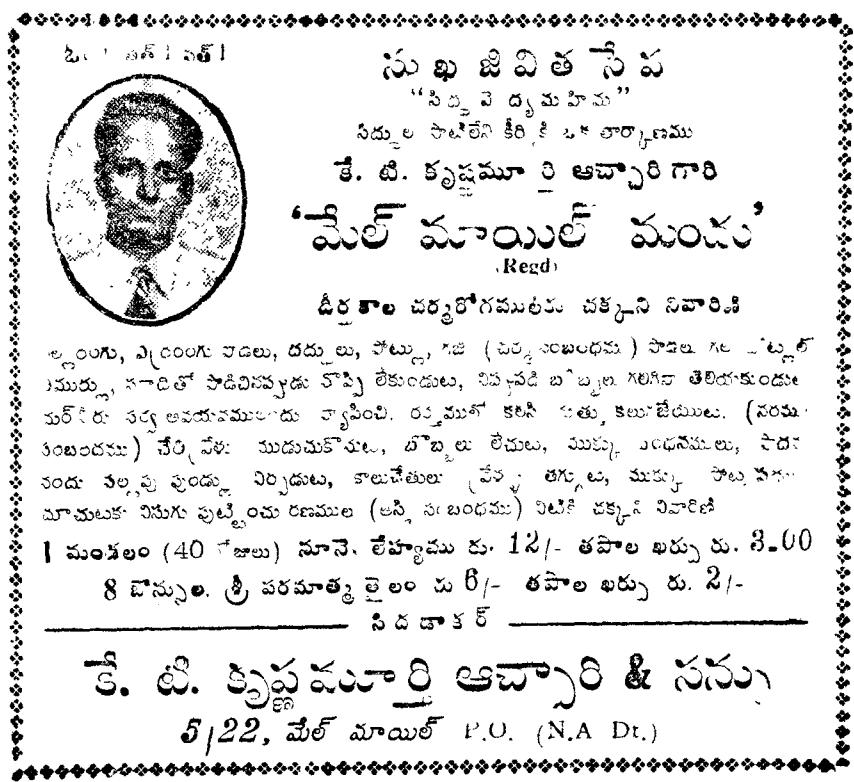 ఓం సత్
సుఖ జీవిత సేవ
"సిద్ధవైద్యమహిమ"
సిద్ధుల సాటిలేని కీర్తికి ఒక తార్కాణము
కే. టి. కృష్ణమూర్తి ఆచ్చారి గారి
'మేల్ మాయిల్ మందు'
(Regd)
దీర్ఘకాల చర్మరోగములకు చక్కని నివారిణి
ఎర్రరంగు పొడలు, దద్దులు, పోట్లు, గజ్జి (చర్మసంబంధము)
పొడిచినప్పుడు నొప్పి లేకుండుట, నిప్పుపడి బొబ్బలు కలిగినా తెలియకుండుట
సర్వ అవయవములందు వ్యాపించి. రక్తములో కలిసి కలుగజేయుట. (నరము
సంబంధము) చేర్ల వేళ్లు ముడుచుకొనుట, బొబ్బలు లేచుట, ముక్కు బంధనములు, పాదము
నందు నల్లపు పుండ్లు నిర్పడుట, కాలుచేతులు వ్రేళ్ళు తగ్గుట, ముక్కు
చూచుటకు విసుగు పుట్టించు రణముల (అస్థి సంబంధము) నిటికి చక్కని నివారిణి
1 మండలం (40 రోజులు) నూనె, లేహ్యము రు. 12/- తపాల ఖర్చు రు. 3-00
8 బోన్సుల. శ్రీ పరమాత్మ తైలం రు 6/- తపాల ఖర్చు రు. 2/-
సిద డాకర్
కే. టి. కృష్ణమూర్తి ఆచ్చారి & సన్సు
5/22, మేల్ మాయిల్ P.O. (N.A Dt.)